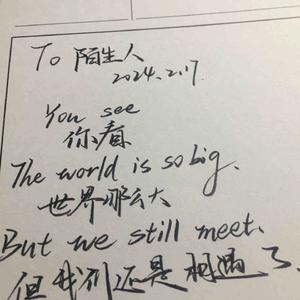 To 陌生人
2024.2.17.
You see
你看
The world is so big.
世界那么大
But we still meet.
但我们还是相遇了